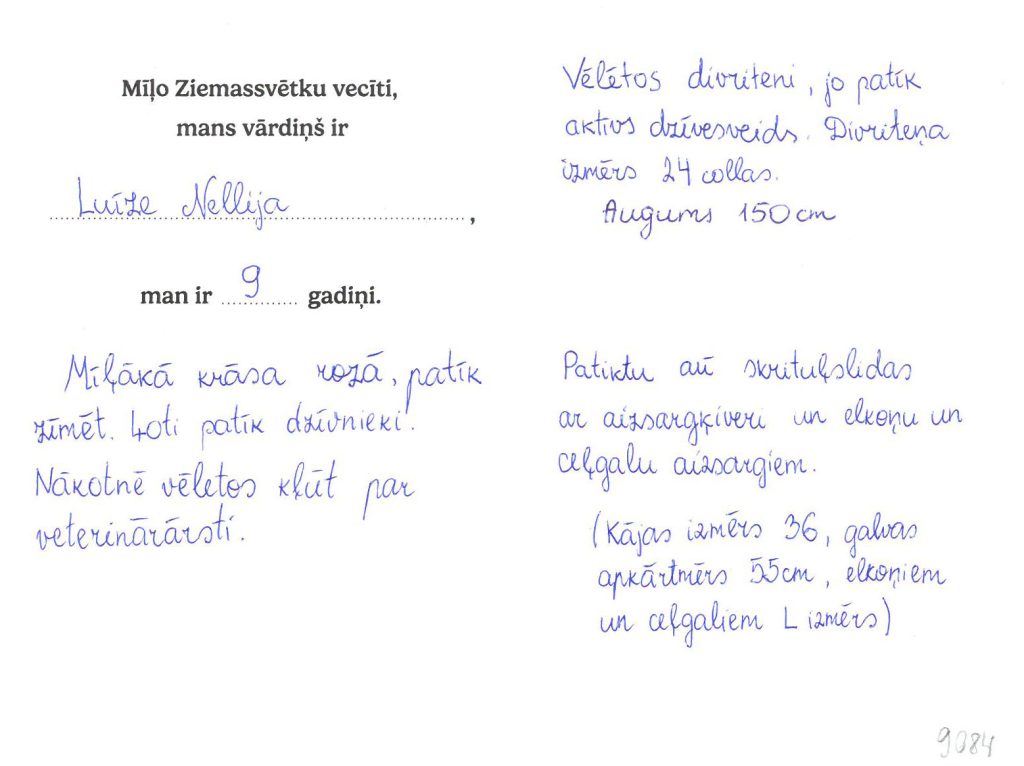 Mīļo Ziemassvētku vecīti,
mans vārdiņš ir
Luīze Nellija,
man ir 9 gadiņi.
Mīļākā krāsa rozā, patīk
zīmēt. Ļoti patīk dzīvnieki!
Nākotnē vēlētos kļūt par
veterinārārsti.
Vēlētos divriteni, jo patīk
aktīvs dzīvesveids. Divriteņa
izmērs 24 collas.
Augums 150 cm
Patiktu arī skrituļslidas
ar aizsargķiveri un elkoņu un
ceļgalu aizsargiem.
(Kājas izmērs 36, galvas
apkārtmērs 55cm, elkoņiem
un ceļgaliem L izmērs)
9084